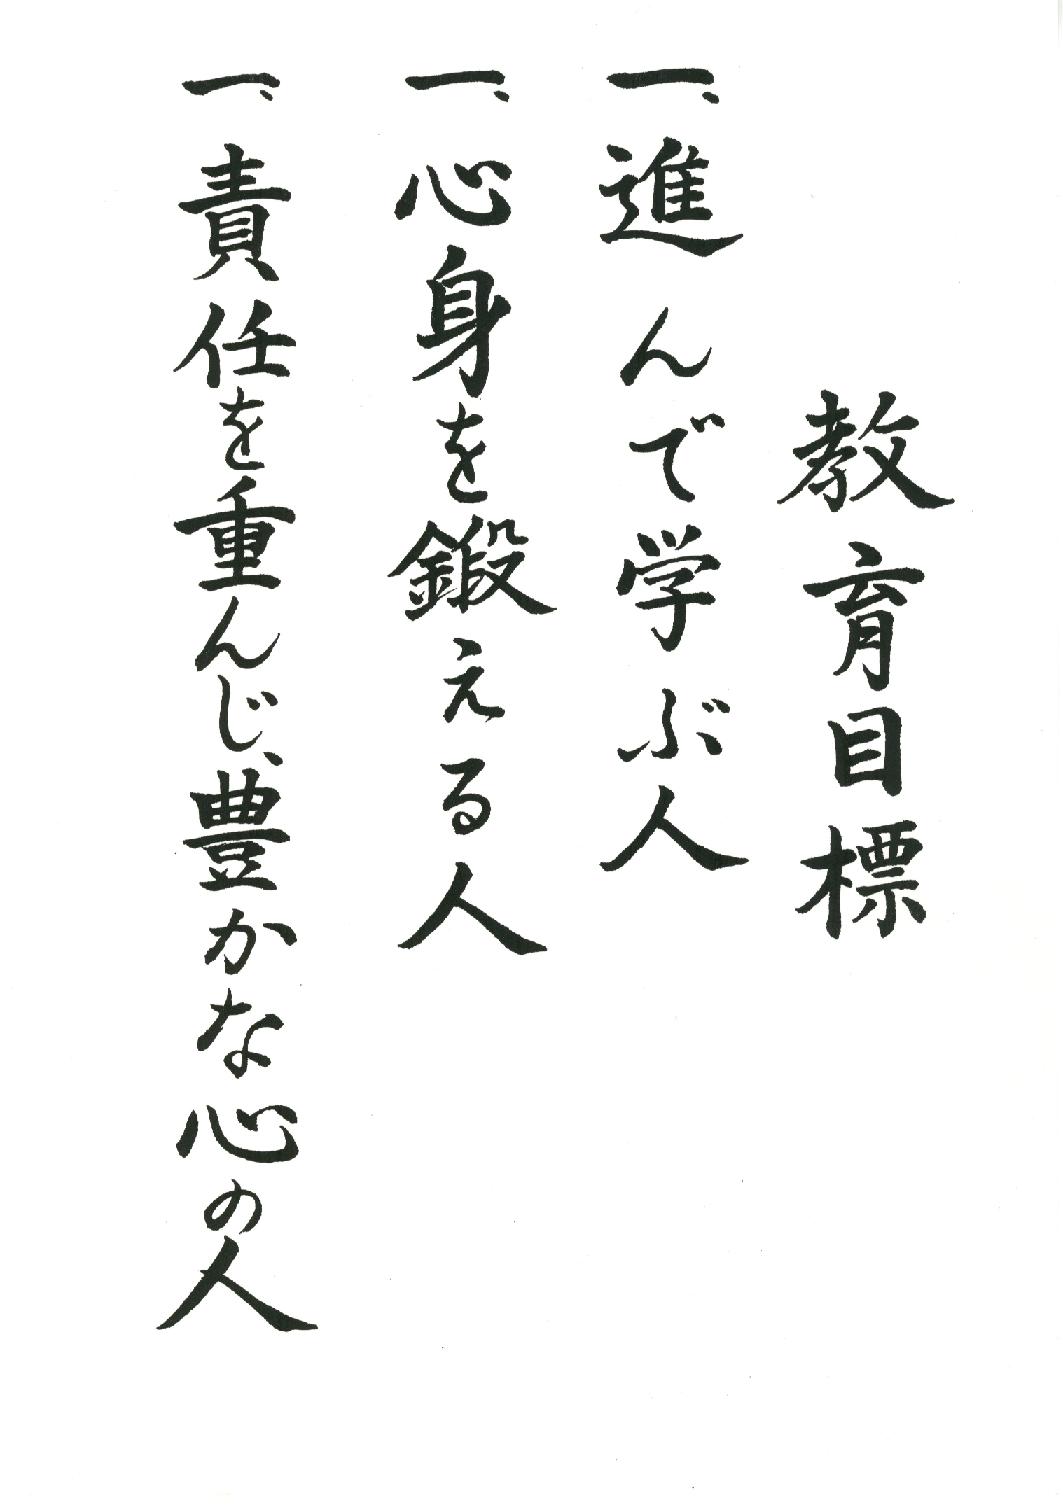 教育目標
一、進んで学ぶ人
一、心身を鍛える人
一、責任を重んじ、豊かな心の人